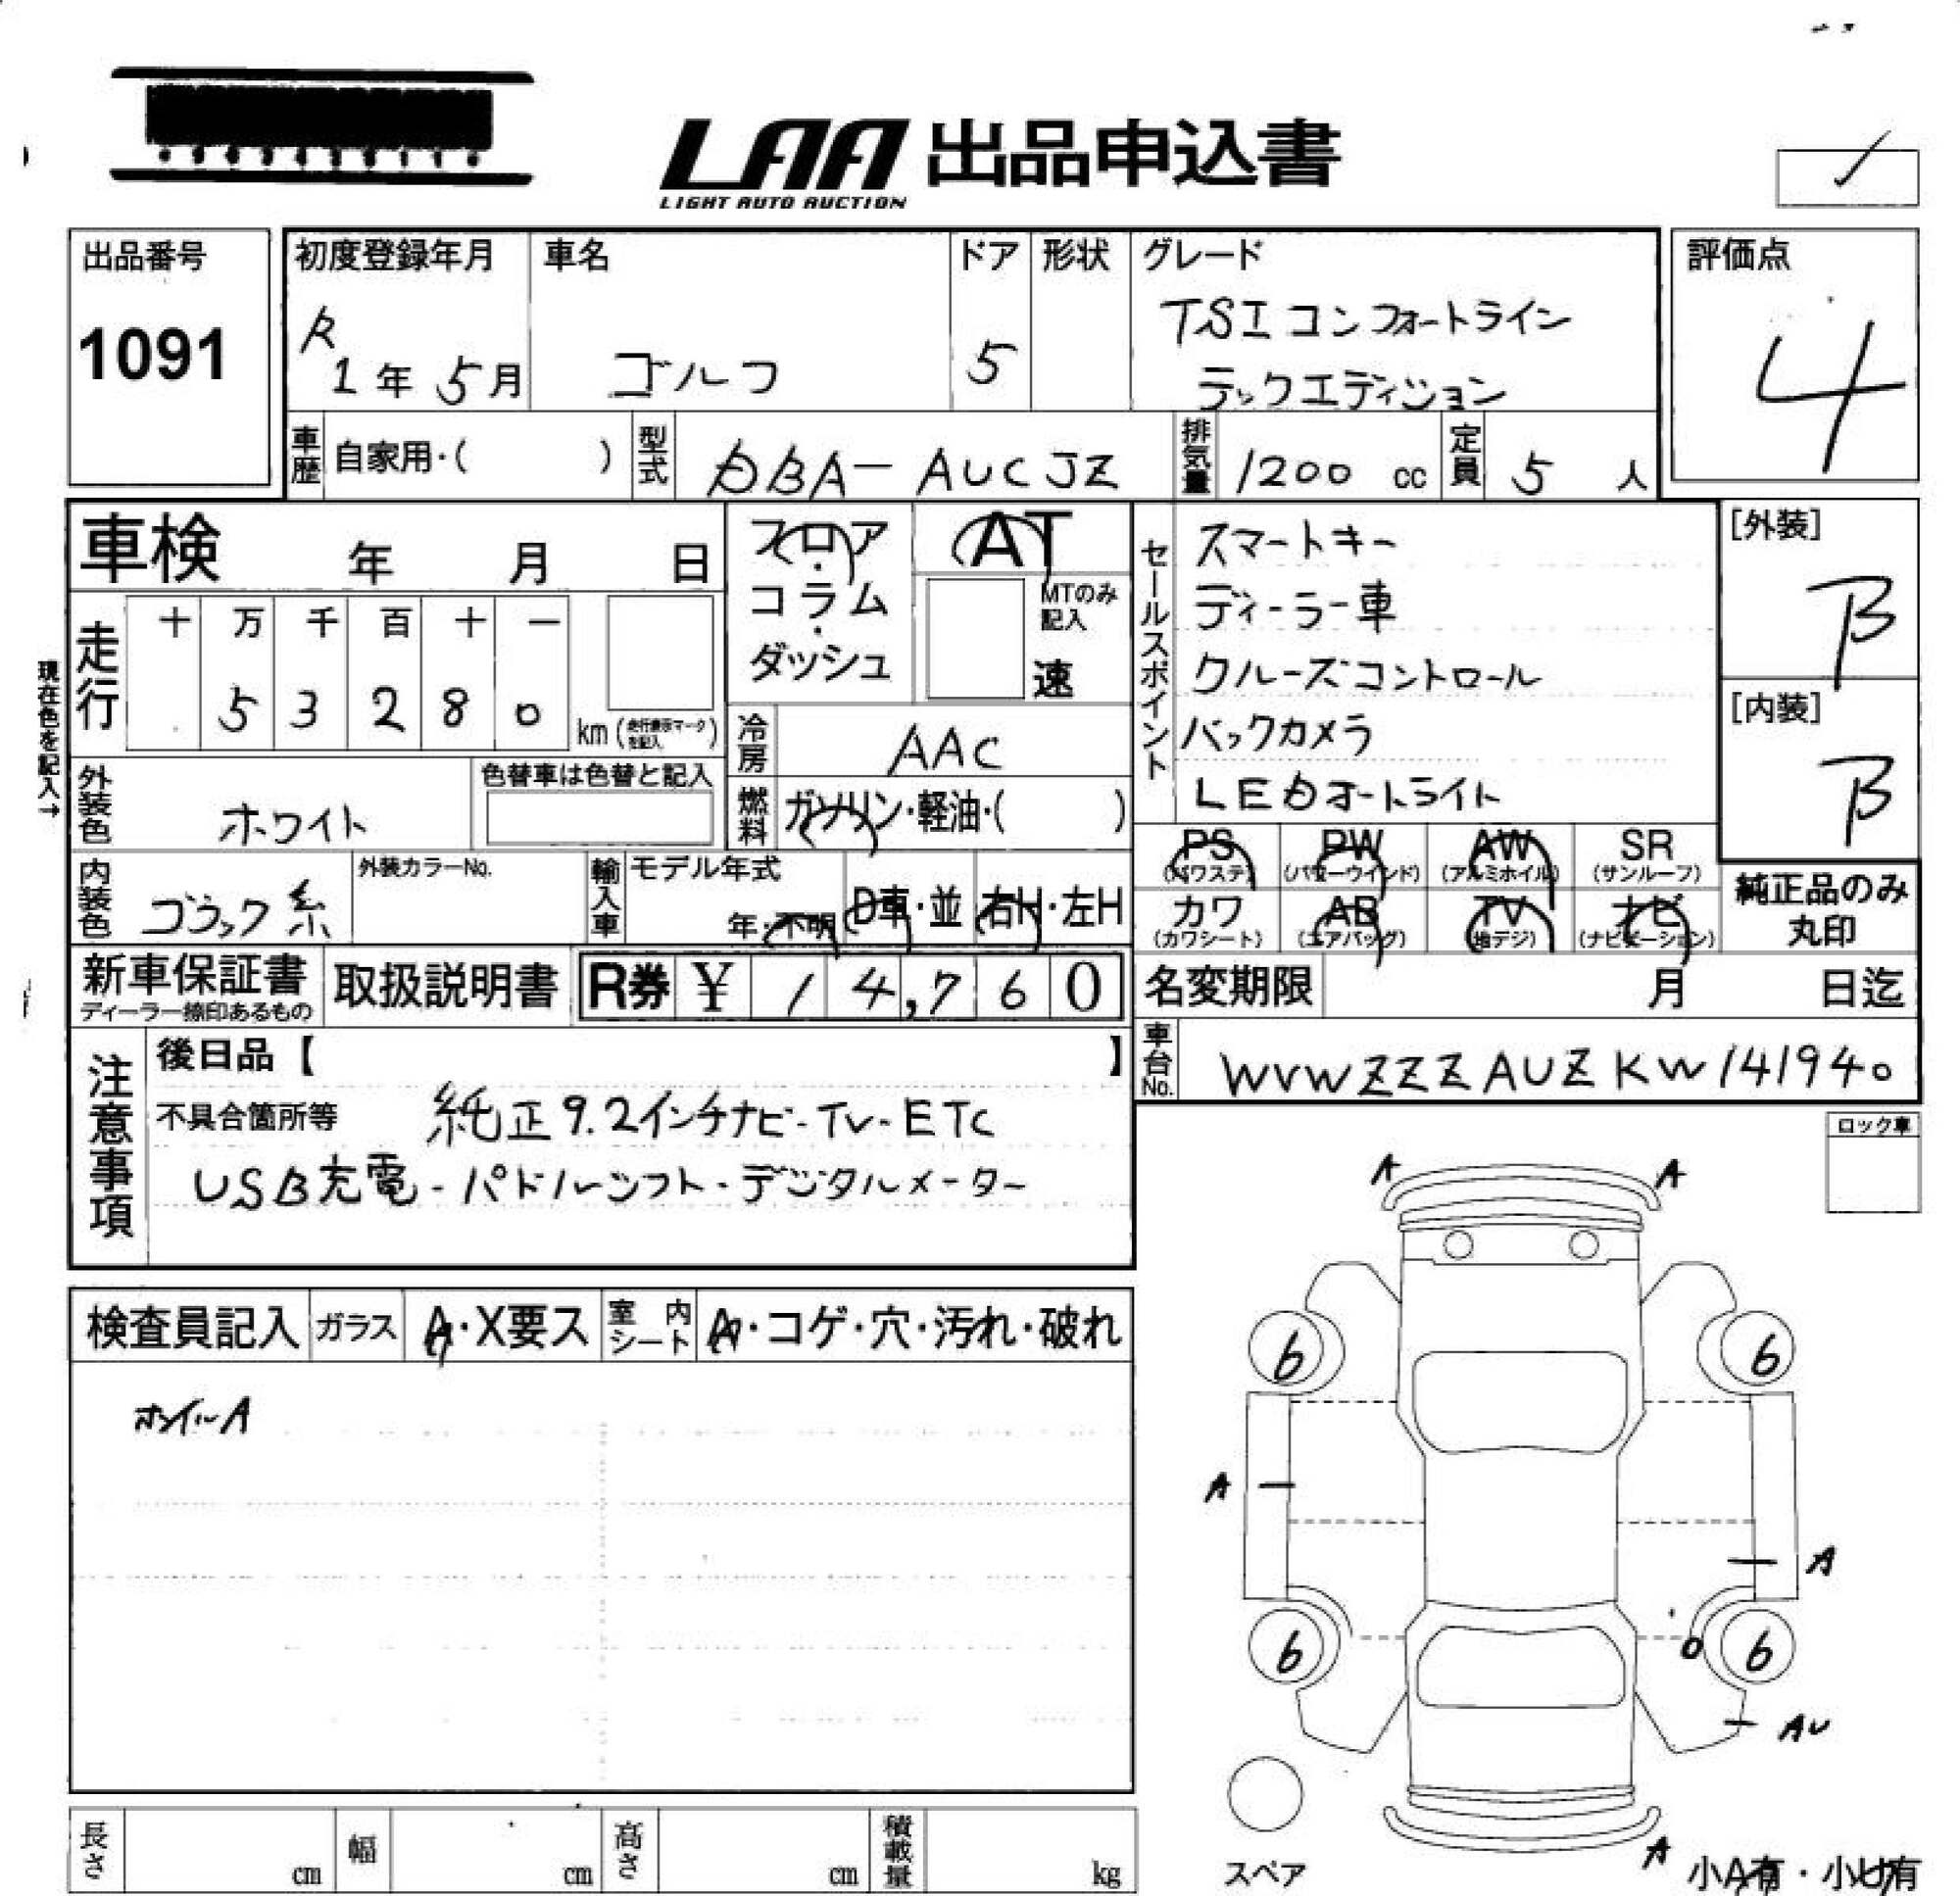 LAA 出品申込書
LIGHT AUTO AUCTION
出品番号
1091
初度登録年月
R
1年 5月
車名
ゴルフ
ドア
5
形状
グレード
TSI コンフォートライン
テックエディション
評価点
4
車歴 自家用・( )
型式 DBA- AUCJZ
排気量 1200 cc
定員 5 人
車検 年 月 日
フロア・コラム・ダッシュ
AT
MTのみ記入
速
セールスポイント
スマートキー
ディーラー車
クルーズコントロール
バックカメラ
LEDオートライト
[外装]
B
[内装]
B
現在色を記入→
走行
十 万 千 百 十 一
5 3 2 8 0
km (走行表示マークを記入)
冷房 AAC
外装色 ホワイト
色替車は色替と記入
燃料 ガソリン・軽油・( )
PS (パワステ) PW (パワーウインド) AW (アルミホイル) SR (サンルーフ)
カワ (カワシート) AB (エアバッグ) TV (地デジ) ナビ (ナビゲーション)
純正品のみ丸印
内装色 ブラック系
外装カラーNo.
輸入車
モデル年式
年・不明
D車・並
右H・左H
新車保証書
ディーラー捺印あるもの
取扱説明書
R券 ¥ 14,760
名変期限 月 日迄
車台No. WVWZZZAUZKW141940
注意事項
後日品【 】
不具合箇所等 純正9.2インチナビ-TV-ETC
USB充電-パドルシフト-デジタルメーター
ロック車
検査員記入
ガラス A・X要ス
室内シート A・コゲ・穴・汚れ・破れ
ホイールA
A A
6 6
A
A
6 6
AU
スペア
A
小A有・小U有
長さ cm
幅 cm
高さ cm
積載量 kg